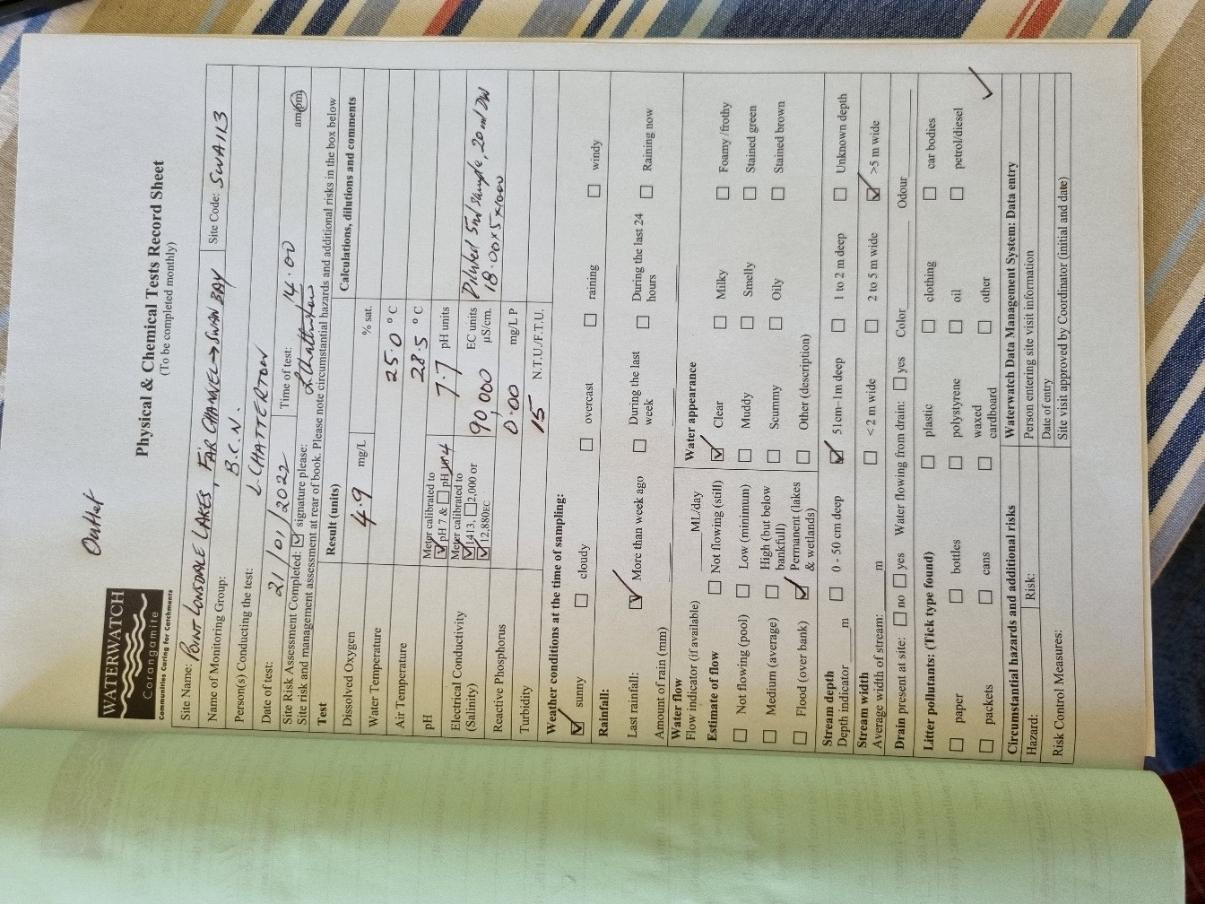 Outlet
WATERWATCH
Corangamite
Communities Caring for Catchments
Physical & Chemical Tests Record Sheet
(To be completed monthly)
Site Name: POINT LONSDALE LAKES, FAR CHANNEL → SWAN BAY Site Code: SWA113
Name of Monitoring Group: B.C.N.
Person(s) Conducting the test: L. CHATTERTON
Date of test: 21/01/2022 Time of test: 14.00 am/pm
Site Risk Assessment Completed: ☑ signature please:
Site risk and management assessment at rear of book. Please note circumstantial hazards and additional risks in the box below
Test Result (units) Calculations, dilutions and comments
Dissolved Oxygen 4.9 mg/L % sat.
Water Temperature 25.0 °C
Air Temperature 28.5 °C
pH Meter calibrated to ☑ pH 7 & ☐ pH 4 7.7 pH units
Electrical Conductivity (Salinity) Meter calibrated to ☑ 1,413, ☐ 2,000 or ☑ 12,880EC 90,000 EC units µS/cm. Diluted 5ml sample, 20ml DW
18.00 x 5 x 1000
Reactive Phosphorus 0.00 mg/L P
Turbidity 15 N.T.U./F.T.U.
Weather conditions at the time of sampling:
☑ sunny ☐ cloudy ☐ overcast ☐ raining ☐ windy
Rainfall:
Last rainfall: ☑ More than week ago ☐ During the last week ☐ During the last 24 hours ☐ Raining now
Amount of rain (mm)
Water flow Water appearance
Flow indicator (if available) ____ ML/day
Estimate of flow ☐ Not flowing (still) ☑ Clear ☐ Milky ☐ Foamy/frothy
☐ Not flowing (pool) ☐ Low (minimum) ☐ Muddy ☐ Smelly ☐ Stained green
☐ Medium (average) ☐ High (but below bankfull) ☐ Scummy ☐ Oily ☐ Stained brown
☐ Flood (over bank) ☑ Permanent (lakes & wetlands) ☐ Other (description)
Stream depth
Depth indicator ____ m ☐ 0 - 50 cm deep ☑ 51cm-1m deep ☐ 1 to 2 m deep ☐ Unknown depth
Stream width
Average width of stream: ____ m ☐ < 2 m wide ☐ 2 to 5 m wide ☑ >5 m wide
Drain present at site: ☐ no ☐ yes Water flowing from drain: ☐ yes Color ____ Odour ____
Litter pollutants: (Tick type found)
☐ paper ☐ bottles ☐ plastic ☐ clothing ☐ car bodies
☐ packets ☐ cans ☐ polystyrene ☐ oil ☐ petrol/diesel
☐ waxed cardboard ☐ other
Circumstantial hazards and additional risks Waterwatch Data Management System: Data entry
Hazard: Risk: Person entering site visit information
Date of entry
Risk Control Measures: Site visit approved by Coordinator (initial and date)